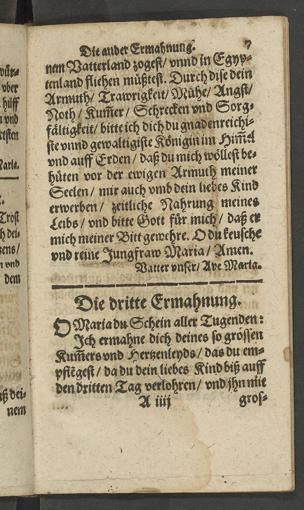 wür-
vber
hülff
n vnd
etsten
Maria.
Trost
ch dei-
zens/
n vnd
dem
uß dei-
nem
Die ander Ermahnung. 7
nem Vatterland zogest/ vnnd in Egyp-
tenland fliehen müßtest. Durch dise dein
Armuth/ Trawrigkeit/ Mühe/ Angst/
Noth/ Kum̃er/ Schrecken vnd Sorg-
fältigkeit/ bitte ich dich du gnadenreichi-
ste vnnd gewaltigiste Königin im Him̃el
vnd auff Erden/ daß du mich wöllest be-
hüten vor der ewigen Armuth meiner
Seelen/ mir auch vmb dein liebes Kind
erwerben/ zeitliche Nahrung meines
Leibs/ vnd bitte Gott für mich/ daß er
mich meiner Bitt gewehre. O du keusche
vnd reine Jungfraw Maria/ Amen.
Vatter vnser/ Ave Maria.
Die dritte Ermahnung.
O Maria du Schein aller Tugenden:
Ich ermahne dich deines so grossen
Kum̃ers vnd Hertzenleyds/ das du em-
pfiẽgest/ da du dein liebes Kind biß auff
den dritten Tag verlohren/ vnd jhn mie
A iiij gros-